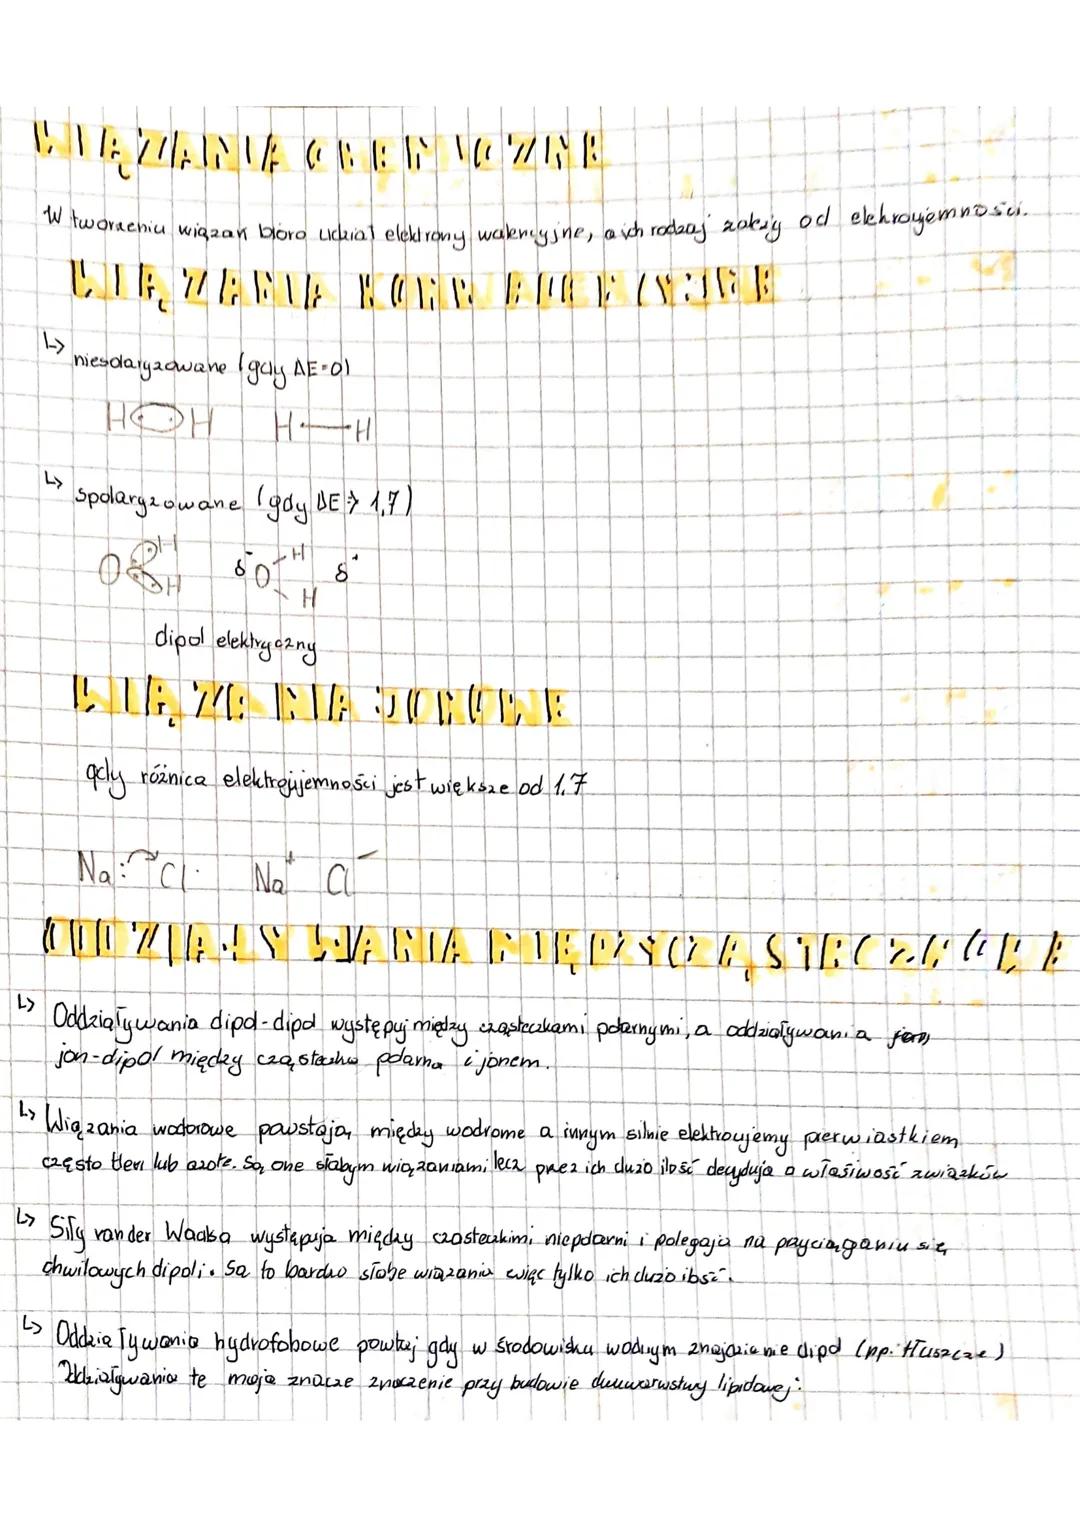 WIĄZANIA CHEMICZNE
W tworzeniu wiązań biorą udział elektrony walencyjne, a ich rodzaj zależy od elektroujemności.
WIĄZANIA KOWALENCYJNE
↳ niespolaryzowane (gdy ΔE=0)
H H H—H
↳ spolaryzowane (gdy ΔE > 1,7)
O H H δ⁻ O H H δ⁺
dipol elektryczny
WIĄZANIA JONOWE
gdy różnica elektroujemności jest większe od 1.7
Na: Cl· Na⁺ Cl⁻
ODDZIAŁYWANIA MIĘDZYCZĄSTECZKOWE
↳ Oddziaływania dipol-dipol występuj między cząsteczkami polarnymi, a oddziaływania
jon-dipol między cząsteczką polarna i jonem.
↳ Wiązania wodorowe powstają, między wodrome a innym silnie elektroujemy pierwiastkiem
często tlen lub azote. Są one słabym wiązaniami lecz przez ich dużo ilość decydują o właśiwość związków
↳ Siły van der Waalsa występują między cząsteczkimi niepolarni i polegają na przyciąganiu się
chwilowych dipoli. Są to bardzo słabe wiązania więc tylko ich dużo ilość.
↳ Oddziaływania hydrofobowe powstaj gdy w środowisku wodnym znajdzie nie dipol (np. tłuszcze)
Oddziaływania te mają znacze znaczenie przy budowie dwuwarstwy lipidowej.